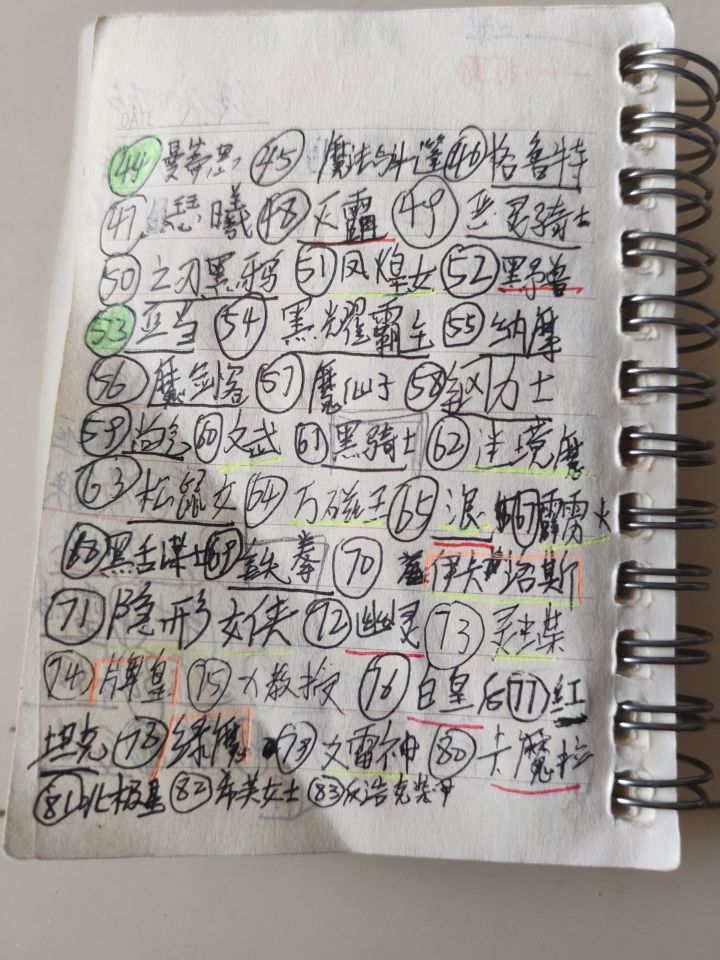 DATE
㊹曼蒂思 ㊺魔法与斗篷 ㊻格鲁特
㊼曦 ㊽灭霸 ㊾恶灵骑士
㊿之刃黑牙 51凤煌女 52黑予兽
53亚当 54黑耀霸王 55纳摩
56魔剑客 57魔仙子 58力士
59 60文武 61黑骑士 62半境魔
63松鼠女 64万磁王 65浪 67霹雳火
68黑舌谋士 69铁拳 70伊卡塔斯
71隐形女侠 72幽灵 73灵蝶
74牌皇 75X教授 76白皇后 77红
坦克 78绿魔 79女雷神 80卡魔拉
81北极基 82希美女士 83反浩克装甲